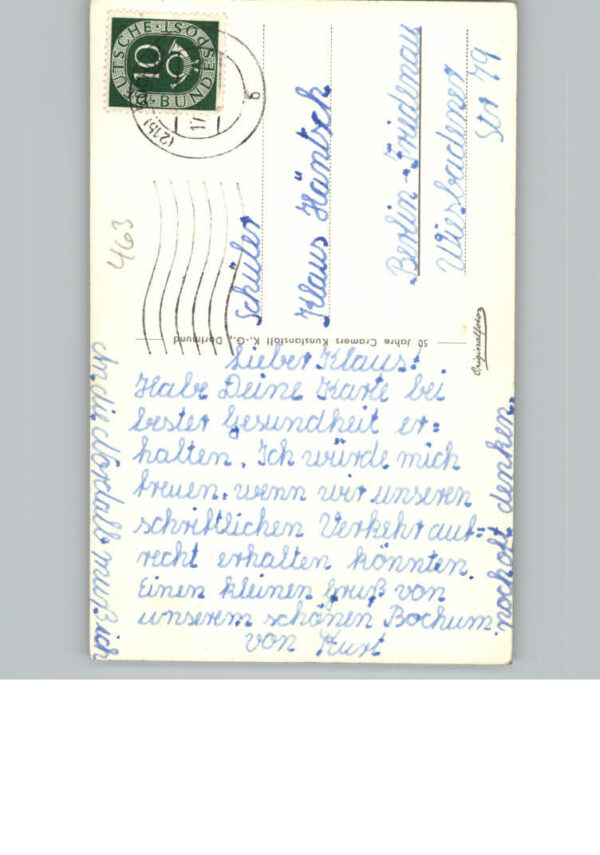 DEUTSCHE BUNDESPOST
10
(21b)
17
6
463
Schüler
Klaus Häntzk
Berlin-Friedenau
Wiesbadener
Str 79
50 Jahre Cramers Kunstanstalt K.-G., Dortmund
Originalfoto
Lieber Klaus!
Habe Deine Karte bei
bester Gesundheit er=
halten. Ich würde mich
freuen, wenn wir unseren
schriftlichen Verkehr auf=
recht erhalten könnten.
Einen kleinen Gruß von
unserem schönen Bochum.
von Kurt
An die muß ich
noch oft denken.